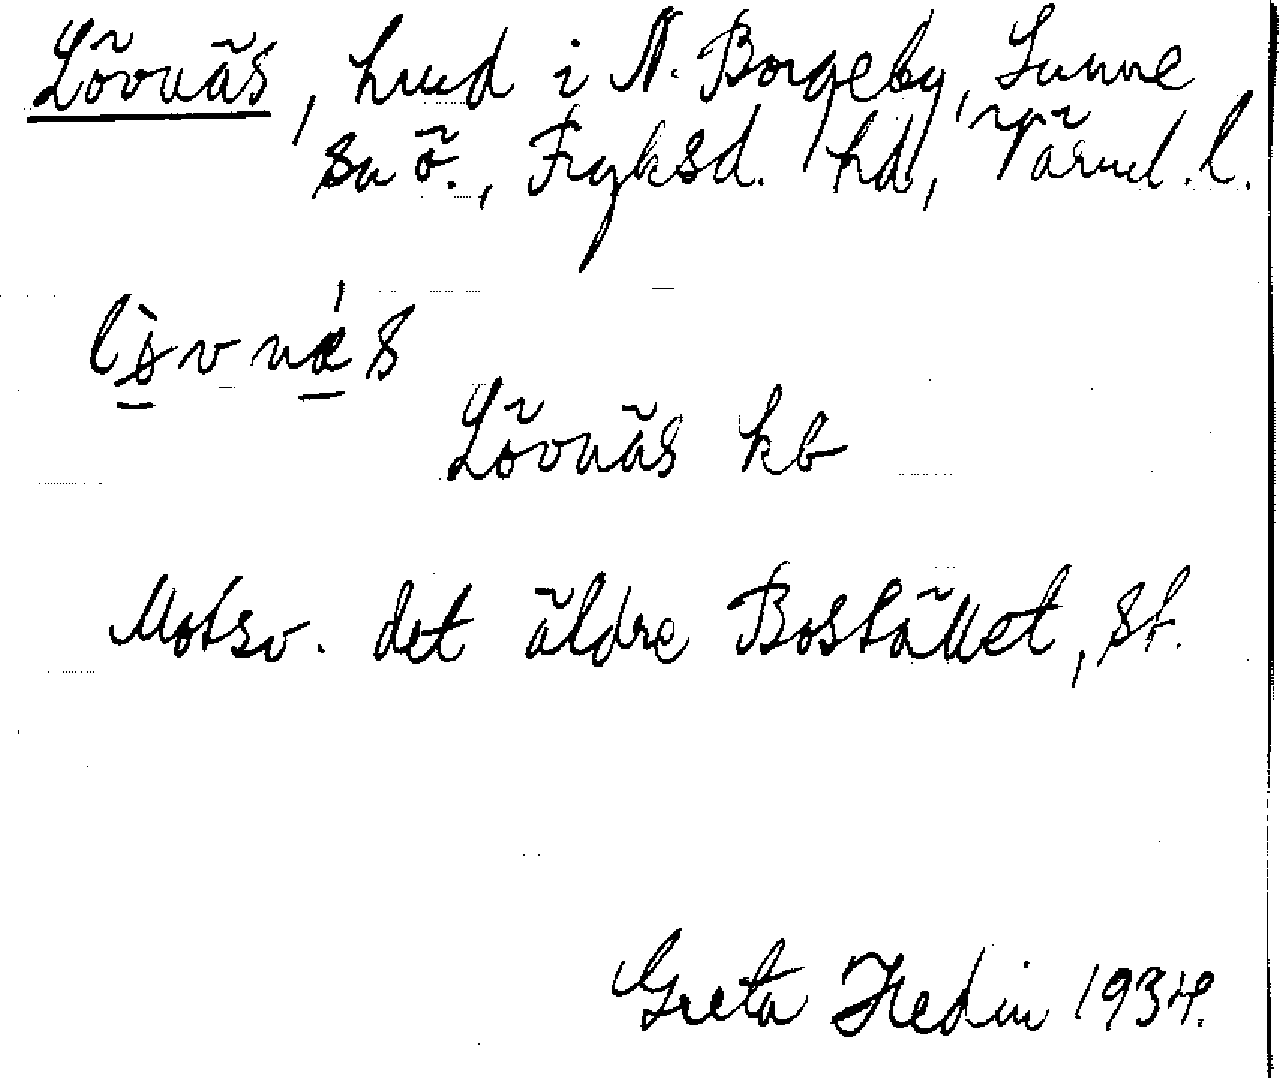 Lövnäs, hmd i N. Borgeby, Sunne
sn ö., Fryksd. hd, Värml. l.
Lövnäs kb
Motsv. det äldre Bostället, st.
Greta Hedin 1934.